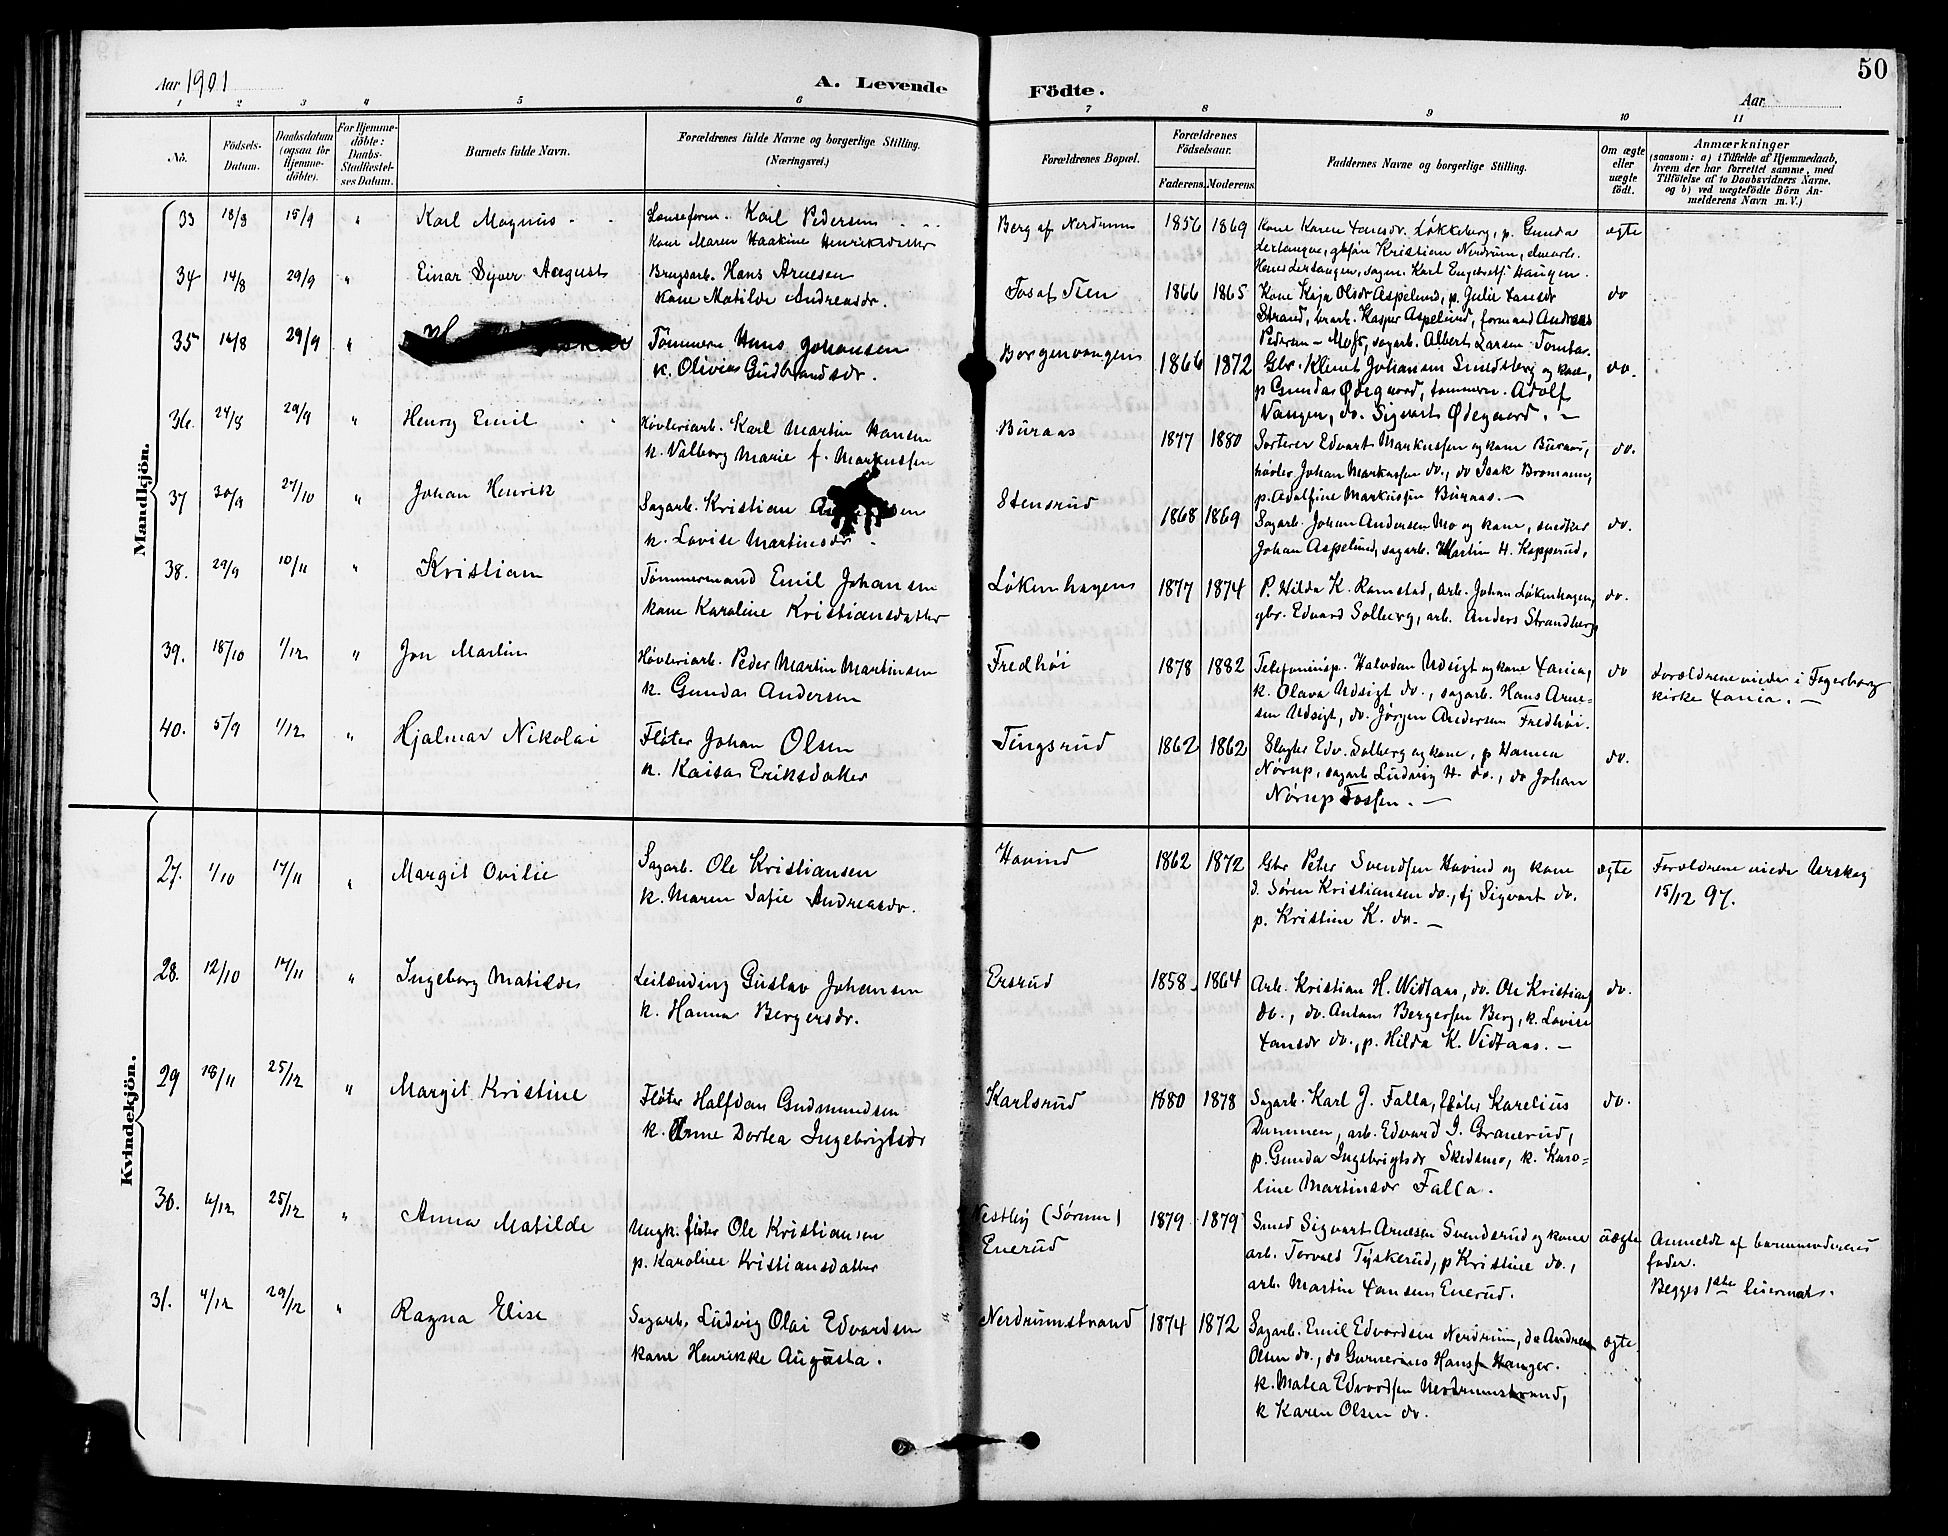 50
Aar 1901
A. Levende
Födte.
Aar
1 2 3 4 5 6 7 8 9 10 11
No.
Födsels-
Datum.
Daabsdatum
(ogsaa for
Hjemme-
döbte).
For Hjemme-
döbte:
Daabs-
Stadfæstel-
ses Datum.
Barnets fulde Navn.
Forældrenes fulde Navne og borgerlige Stilling.
(Næringsvei.)
Forældrenes Bopæl.
Forældrenes
Födselsaar.
Faderens. Moderens.
Faddernes Navne og borgerlige Stilling.
Om ægte
eller
uægte
födt.
Anmærkninger
(saasom: a) i Tilfælde af Hjemmedaab,
hvem der har forrettet samme, med
Tilföielse af to Daabsvidners Navne,
og b) ved uægtefödte Börn An-
melderens Navn m. V.)
Mandkjön.
33 18/8 15/9 " Karl Magnus
Karl Pedersen
Kone Maren Haakine Henriksdatter
Berg af Nerdrum 1856 1869
Kone Karen Hansdr. Løkkeberg, p. Gunda
Lerhaugen, gbsøn Kristian Nerdrum,
sagm. Karl Engebretss. Haugen.
ægte
34 14/8 29/9 " Einar Syver August
Brugsarb. Hans Arnesen
Kone Matilde Andreasdr.
1866 1865
Kone Kaja Olsdr Aspelund, p. Julie Hansdr
Strand, brarb. Kasper Aspelund, formand Andreas
Pedersen Mofs, sagarb. Albert Larsen Tomtar.
do
35 14/8 29/9 "
Tømmerm Hans Johansen
k. Olivia Gudbrandsdr.
Borgenvangen 1866 1872
Gbr. Klemet Johansen Smedsberg og kone,
p Gunda Ødegaard, tømmerm. Adolf
Vangen, do. Sigvart Ødegaard. —
do.
36. 24/8 29/9 " Henry Emil
Høvleriarb. Karl Martin Hansen
k. Valborg Marie f. Markussen
Buraas 1877 1880
Sorterer Edvart Markussen og kone Buraas,
høvler Johan Markussen do., do Isak Bromann,
p. Adolfine Markussen Buraas. —
do.
37 20/9 27/10 " Johan Henrik
Sagarb. Kristian
k. Lovise Martinsdr.
Stensrud 1868 1869
Sagarb. Johan Andersen Mo og kone, snedker
Johan Aspelund, sagarb. Martin H. Kopperud,
do.
38. 29/9 10/11 " Kristian
Tømmermand Emil Johansen
kone Karoline Kristiansdatter
Løkenhagen 1877 1874
P. Hilda K. Ramstad, arb. Johan Løkenhagen,
gbr. Edvard Solberg, arb. Anders Strandberg
do.
39. 18/10 1/12 " Jon Martin
Høvleriarb. Peder Martin Martinsen
k. Gunda Andersen
Fredhøi 1878 1882
Telefoninsp. Halvdan Udsigt og kone Xania,
k. Olava Udsigt do., sagarb. Hans Arne-
sen Udsigt, do. Jørgen Andersen Fredhøi.
do
Forældrene viede i Fagerborg
kirke Xania. —
40. 5/9 1/12 " Hjalmar Nikolai
Fløter Johan Olsen
k. Kaisa Eriksdatter
Tingsrud 1862 1862
Slagter Edv. Solberg og kone, p Hanna
Nørup, sagarb Ludvig H. do., do Johan
Nørup Fossen. —
do.
Kvindekjön.
27. 1/10 17/11 " Margit Ovilie
Sagarb. Ole Kristiansen
k. Maren Sofie Andreasdr.
Hovind 1862 1872
Gbr Peter Svendsen Hovind og kone
d. Søren Kristiansen do., tj Sigvart do.
p. Kristine K. do. —
ægte
Forældrene viede Urskog
15/12 97.
28. 12/10 17/11 " Ingeborg Matilde
Leilænding Gustav Johansen
k. Hanna Bergersdr.
Ersrud 1858 1864
Arb. Kristian H. Widtaas, do. Ole Kristians
do., do. Anton Bergersen Berg, k. Lovise
Hansdr do., p. Hilda K. Vidtaas. —
do.
29 18/11 25/12 " Margit Kristine
Fløter Halfdan Gudmundsen
k. Anne Dortea Ingebrigtsdr
Karlsrud 1880 1878
Sagarb. Karl J. Falla, fløter Karelius
Dammen, arb. Edvard I. Granerud,
p. Gunda Ingebrigtsdr Skedsmo, k. Karo-
line Martinsdr Falla.
do.
30. 4/12 25/12 " Anna Matilde
Ungk. fløter Ole Kristiansen
p. Karoline Kristiansdatter
Vestby (Sørum)
Enerud
1879 1879
Smed Sigvart Arnesen Svendsrud og kone
arb. Torvald Tyskerud, p Kristine do.,
arb. Martin Hansen Enerud.
uægte
Anmeldt af barnemoderens
fader.
Begges 1ste leiermaal.
31. 4/12 29/12 " Ragna Elise
Sagarb. Ludvig Olai Edvardsen
kone Henrikke Augusta.
Nerdrumstrand 1874 1872
Sagarb. Emil Edvardsen Nerdrum, do Andreas
Olsen do., do Gunerius Hans. Hanger.
k. Matea Edvardsen Nerdrumstrand,
k Karen Olsen do.
ægte